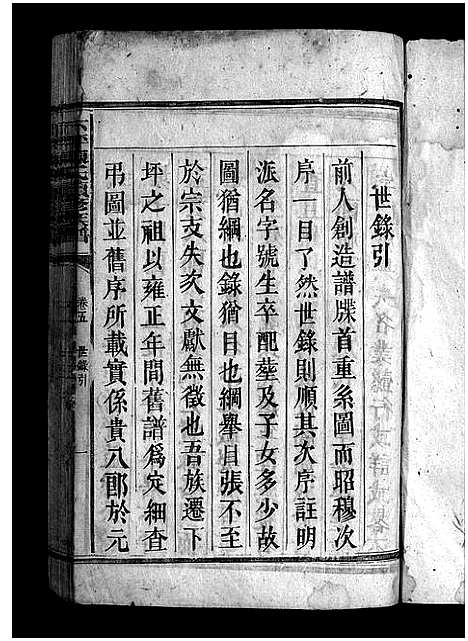 世錄引
前人創造譜牒首重系圖而昭穆次
序一目了然世錄則順其次序註明
派名字號生卒配塟及子女多少故
圖猶綱也錄猶目也綱舉目張不至
於宗支失次文獻無徵也吾族遷下
坪之祖以雍正年間舊譜爲定細查
弔圖並舊序所載實係貴八郎於元
卷五
世錄引
一